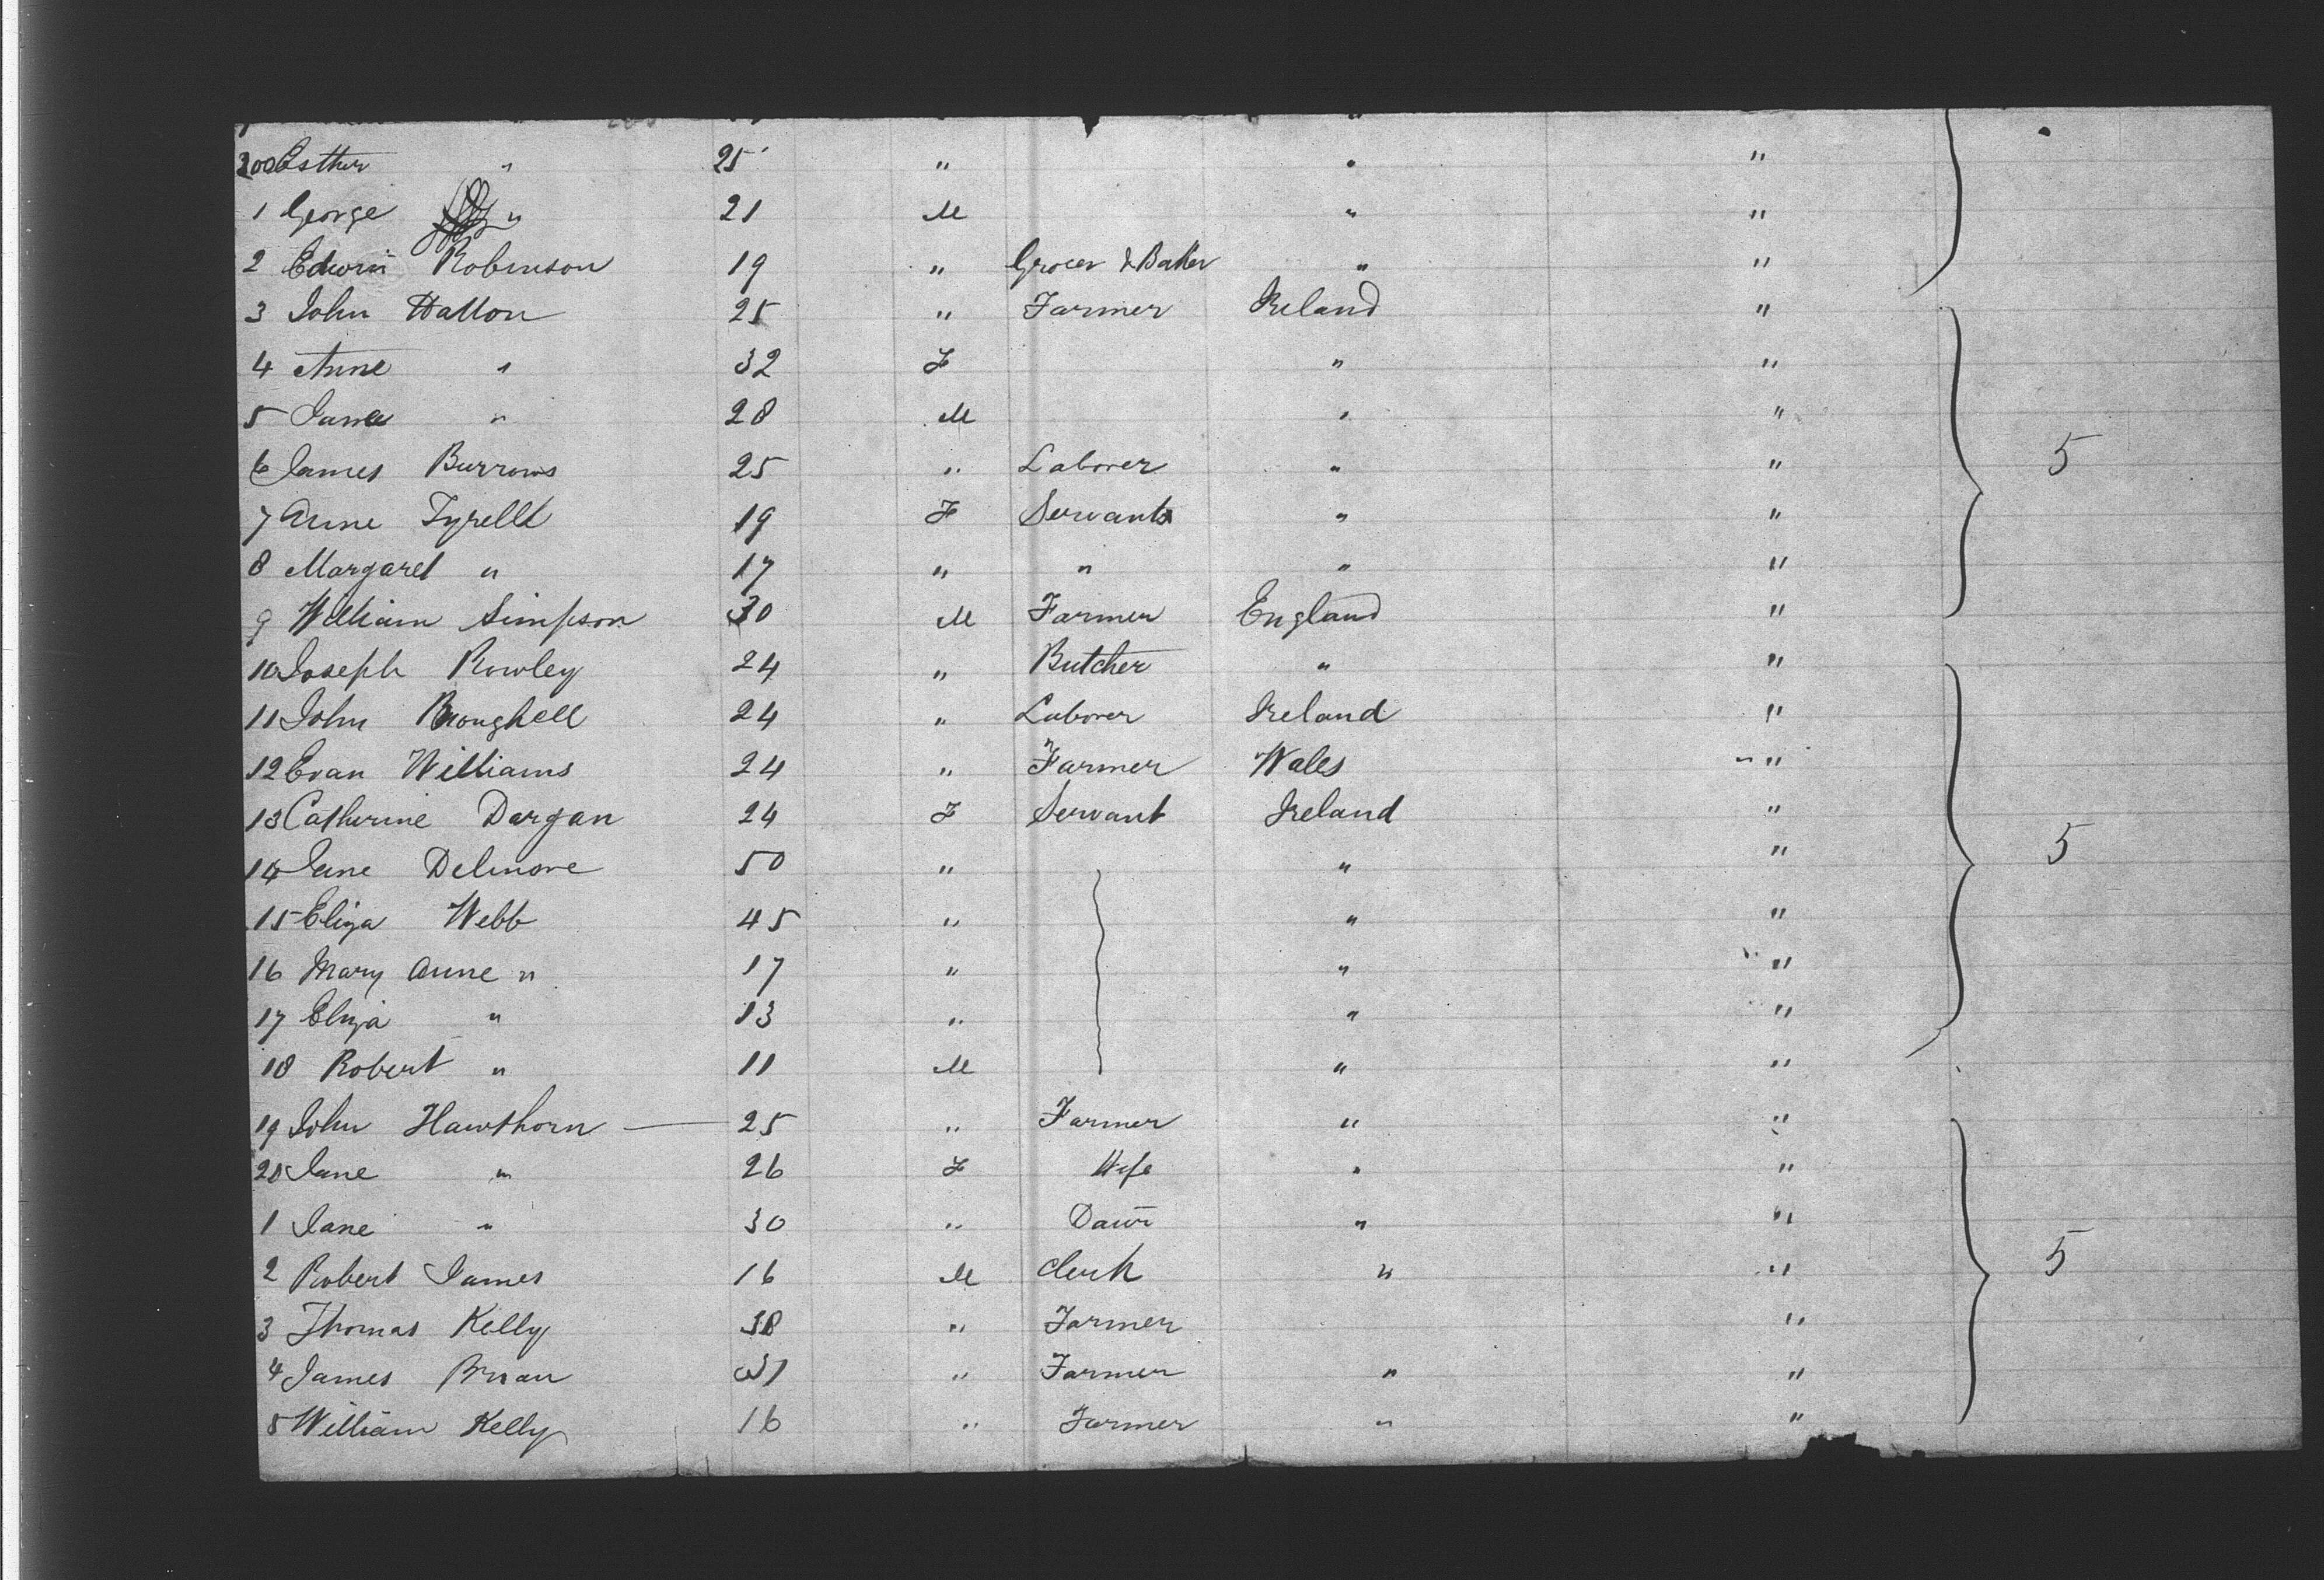 200 Esther " 25 " " "
1 George " 21 M " "
2 Edwin Robinson 19 " Grocer & Baker " "
3 John Hatton 25 " Farmer Ireland "
4 Anne " 32 F " "
5 " 28 M " "
6 James Burrows 25 " Laborer " "
7 Anne Tyrell 19 F Servants " "
8 Margaret " 17 " " " "
9 William Simpson 30 M Farmer England "
10 Joseph Rowley 24 " Butcher " "
11 John Broughell 24 " Laborer Ireland "
12 Evan Williams 24 " Farmer Wales "
13 Catherine Dargan 24 F Servant Ireland "
14 Jane Delmore 50 " " "
15 Eliza Webb 45 " " "
16 Mary Anne " 17 " " "
17 Eliza " 13 " " "
18 Robert " 11 M " "
19 John Hawthorn — 25 " Farmer " "
20 Jane " 26 F Wife " "
1 Jane " 30 " " "
2 Robert James 16 M Clerk " "
3 Thomas Kelly 38 " Farmer "
4 James 31 " Farmer " "
5 William Kelly 16 " Farmer " "
5
5
5